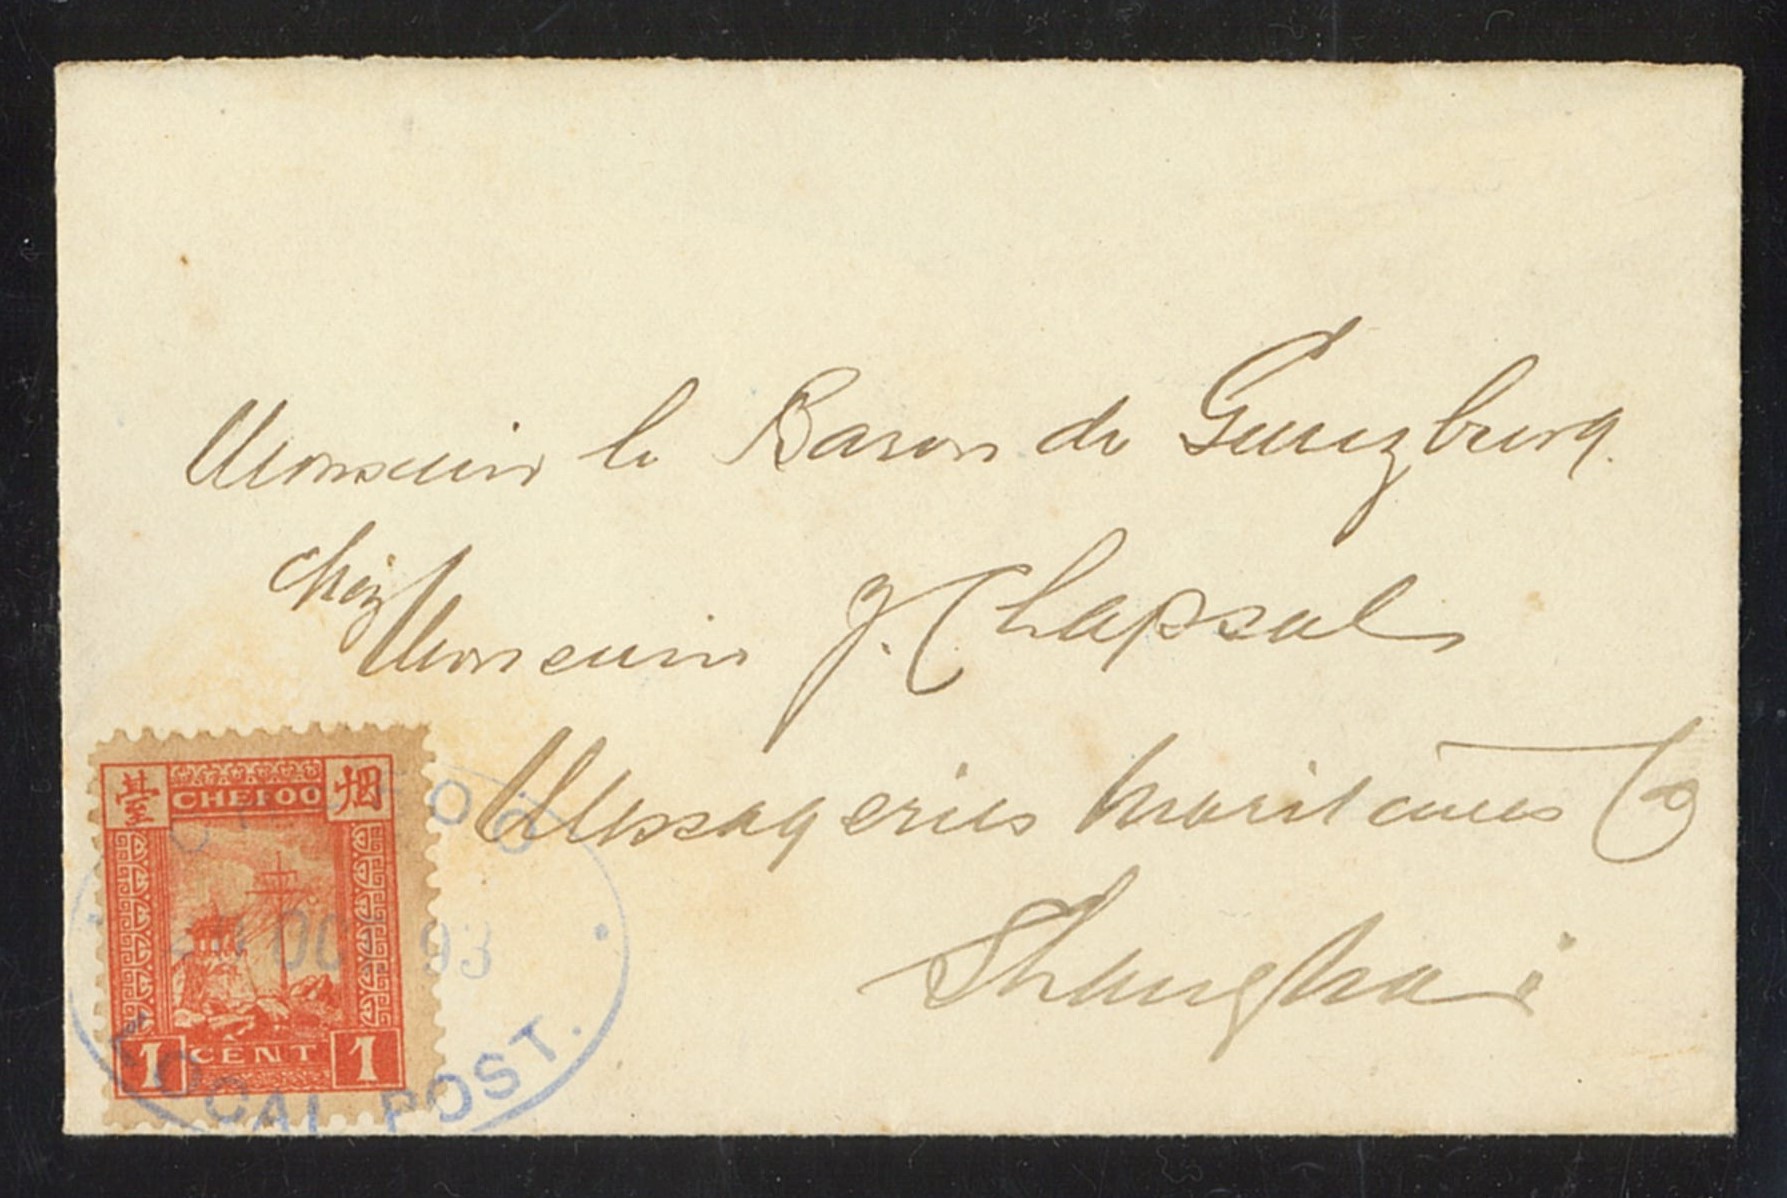 Monsieur le Baron de Gunzburg.
chez
Monsieur J. Chapsal
Messageries maritimes Co
Shanghai
臺 CHEFOO 烟
1 CENT 1
CHEFOO
OCT 93
LOCAL POST.